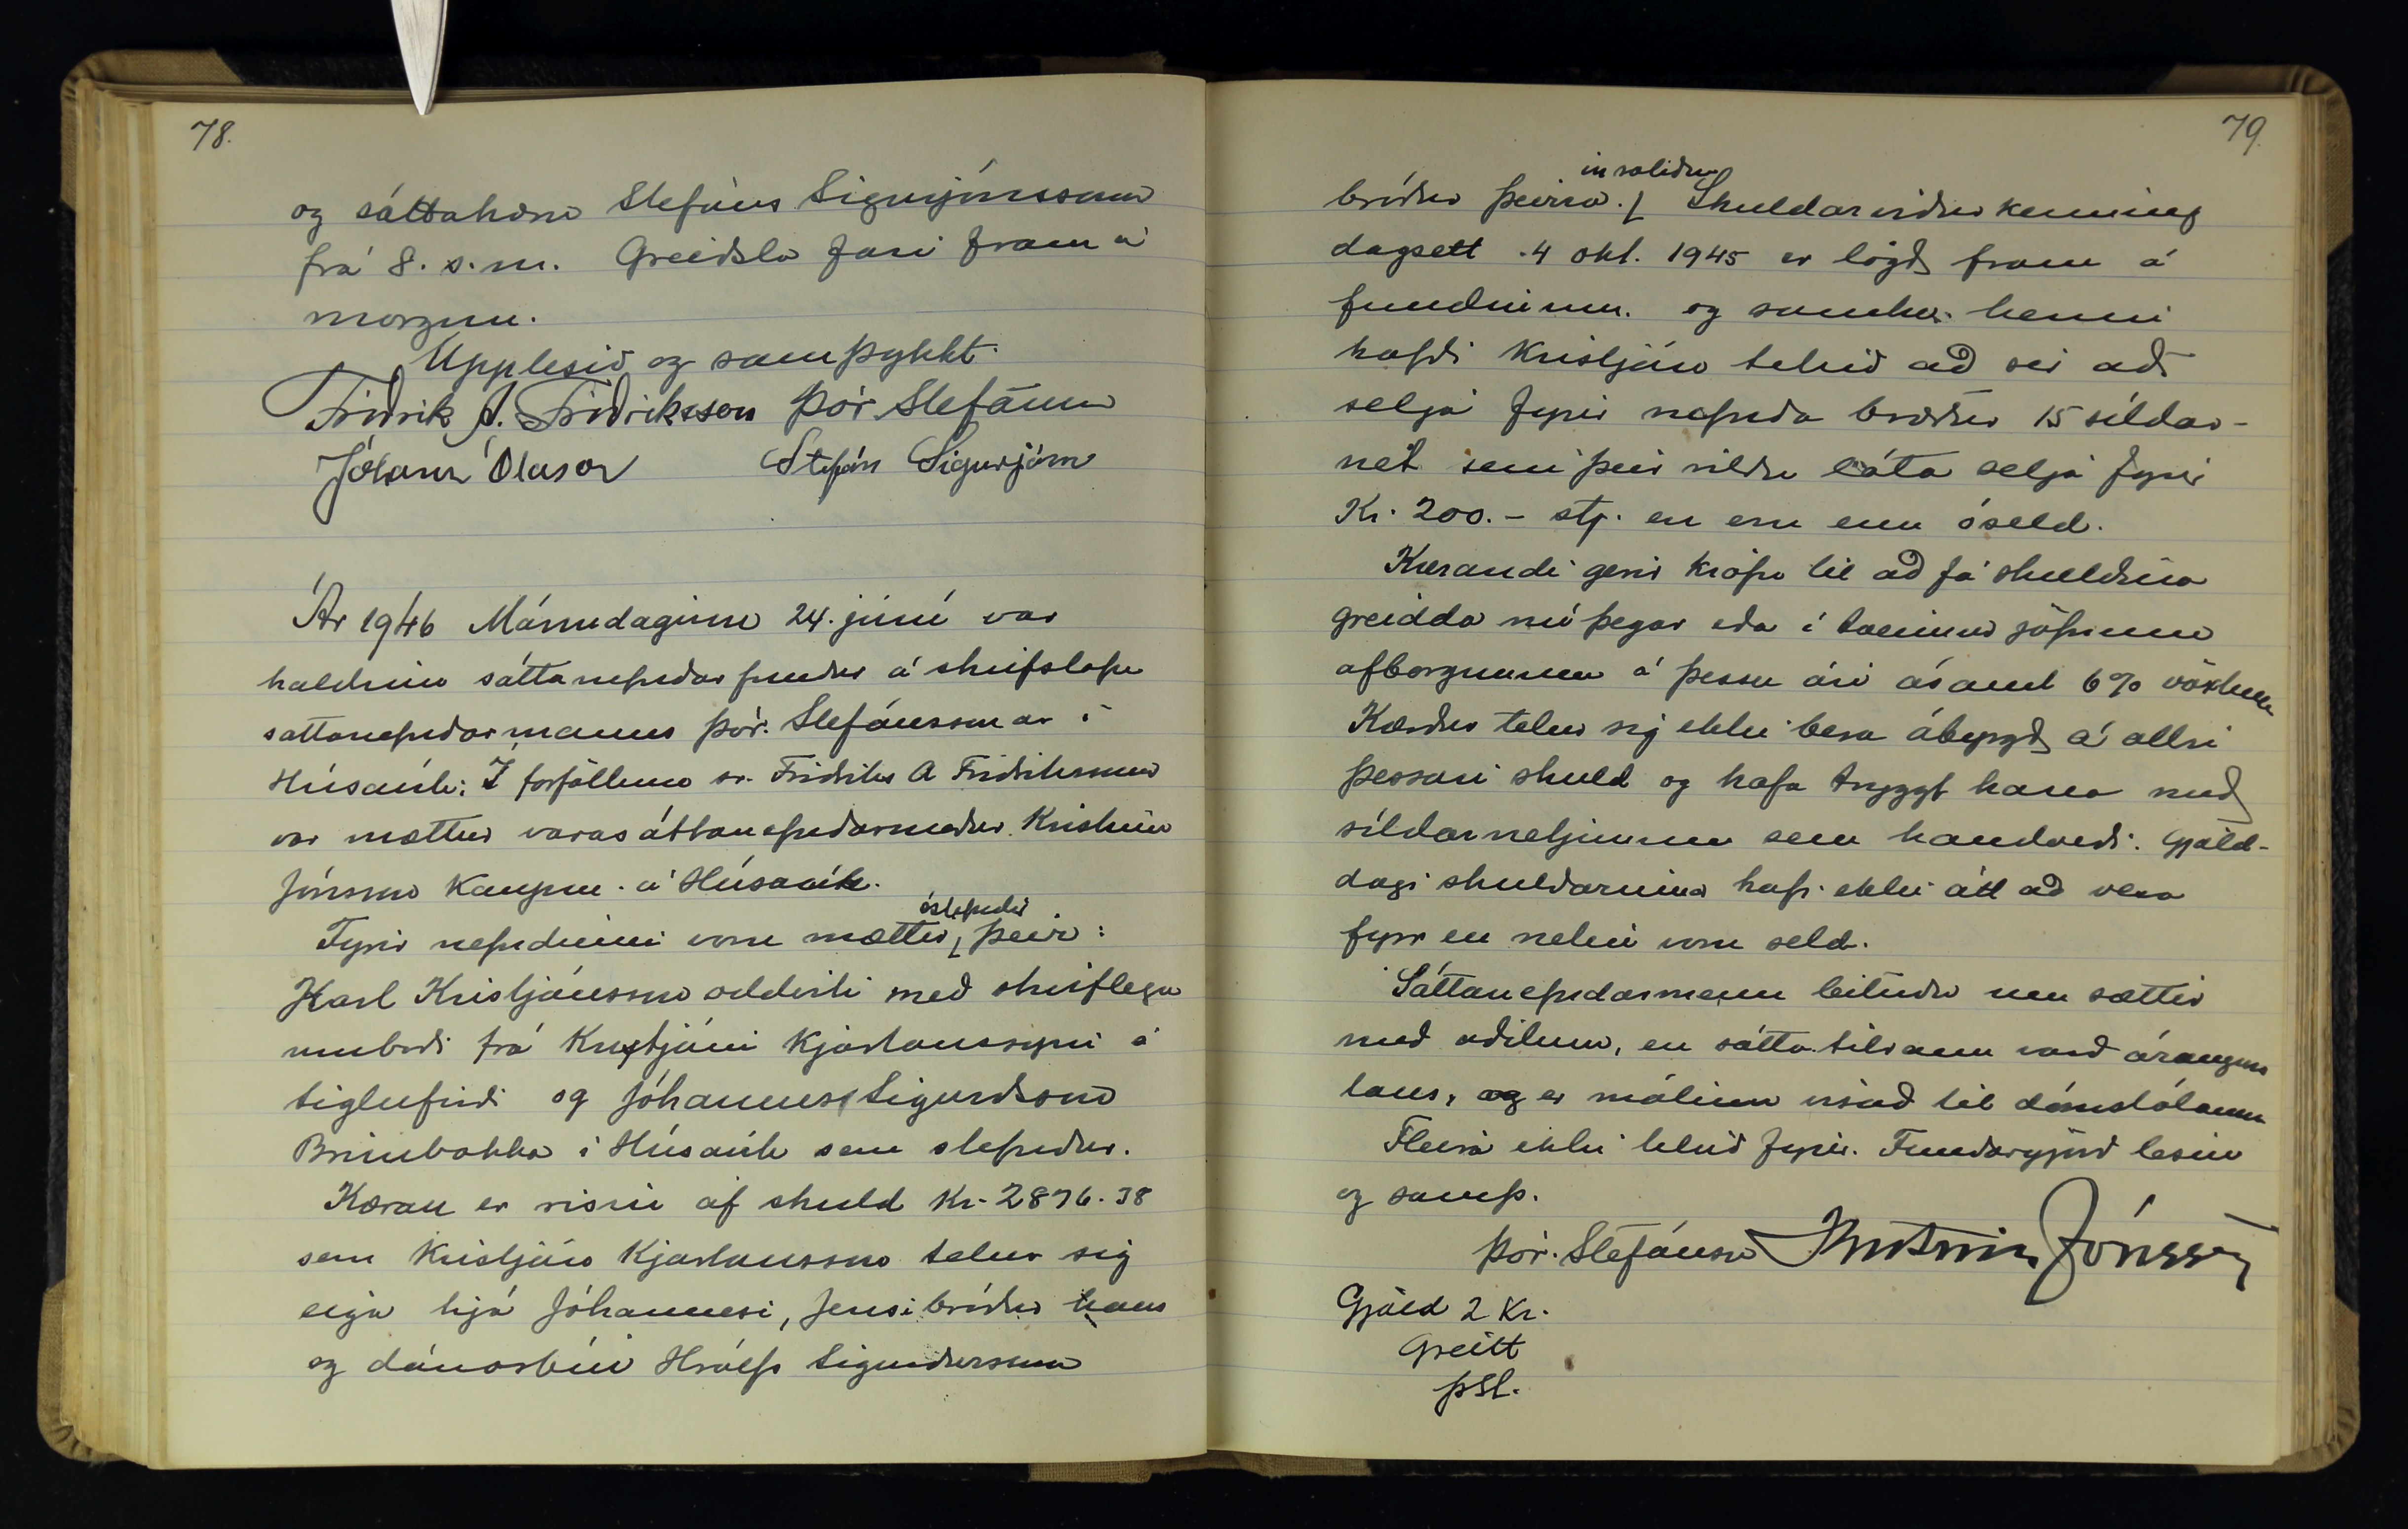 78.
og sáttakæru Stefáns Sigurjónssonar
frá 8. s.m. Greiðsla fari fram á
morgun.
Upplesið og samþykkt.
Friðrik A. Friðriksson Þór Stefánss
Jóhann Ólason Stefán Sigurjónss
Ár 1946 Mánudaginn 24. júní var
haldinn sáttanefndar fundur á skrifstofu
sáttanefndarmanns Þór. Stefánssonar í
Húsavík: Í forföllum sr. Friðriks A Friðrikssonar
var mættur varasáttanefndarmaður Kristinn
Jónsson kaupm. á Húsavík.
Fyrir nefndinni voru mættir óstefndir þeir:
Karl Kristjánsson oddviti með skriflegu
umboði frá Kristjáni Kjartanssyni á
Siglufirði og Jóhannes Sigurdsson
Brimbakka í Húsavík sem stefndur.
Kæran er risin af skuld Kr. 2876.38
sem Kristján Kjartansson telur sig
eiga hjá Jóhannesi, Jensi bróður hans
og dánarbúi Hrólfs Sigurðurssonar
79.
bróður þeirra. Skuldarviðurkenning
dagsett .4 okt. 1945 er lögð fram á
fundinum. og samkv. henni
hafði Kristján tekið að sér að
selja fyrir nefnda bræður 15 síldar-
net sem þeir vildu láta selja fyrir
Kr. 200.- stj. en eru enn óseld.
Kærandi gerir kröfu til að fá skuldina
greidda nú þegar eða í tvennum jöfnum
afborgunum á þessu ári ásamt 6% vöxtum
Kærður telur sig ekki bera ábyrgð á allri
þessari skuld og hafa tryggt hana með
síldarnetjunum sem handveði. Gjald-
dagi skuldarinnar hafi ekki átt að vera
fyrr en netin voru seld.
Sáttanefndarmenn leituðu um sættir
með aðilum, en sátta tilraun varð árangurs
laus, og er málinu vísað til dómstólanna
Fleira ekki tekið fyrir. Fundargjörð lesin
og samþ.
Þór. Stefánsson Kristinn Jónsson
Gjöld 2 Kr.
Greitt
ÞSt.